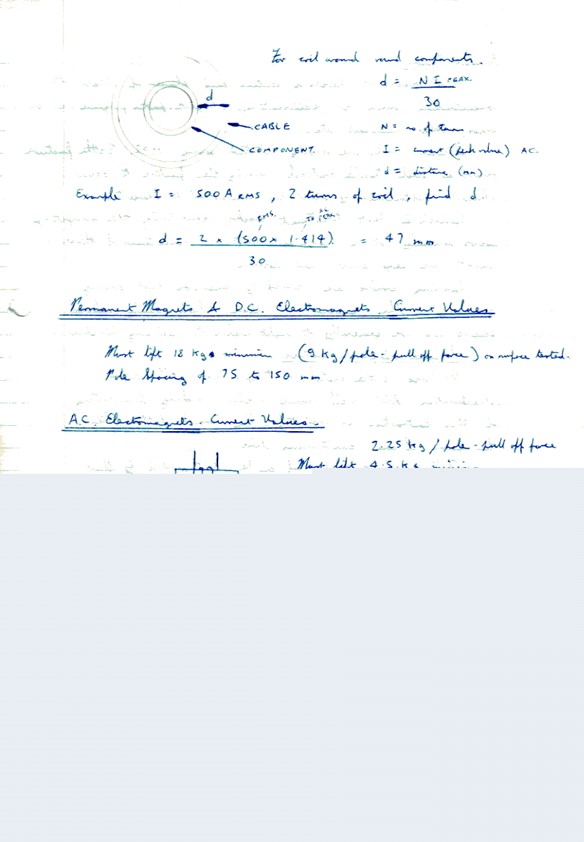 For coil wound round components.
d = N I PEAK
30
d
CABLE
COMPONENT.
N = no. of turns
I = current (peak value) AC.
d = distance (mm)
Example I = 500 A RMS, 2 turns of coil, find d
RMS. TO PEAK
d = 2 x (500 x 1.414) = 47 mm
30
Permanent Magnets & D.C. Electromagnets. Current Values
Must lift 18 kgs minimum (9 kg/pole - pull off force) on surface tested.
Pole Spacing of 75 to 150 mm
A.C. Electromagnets. Current Values.
2.25 kg / pole - pull off force
Must lift 4.5 kg